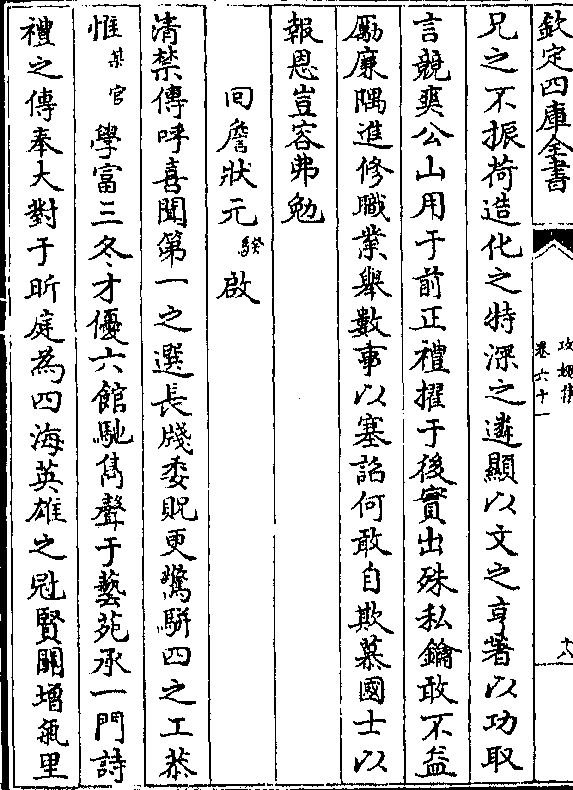 欽定四庫全書
攻媿集
卷六十一
十八
兄之不振荷造化之特深之遴顯以文之亨著以功取
言競爽公山用于前正禮擢于後實出殊私鑰敢不益
勵廉隅進修職業舉數事以塞詔何敢自欺慕國士以
報恩豈容弗勉
回詹狀元騤啟
清禁傳呼喜聞第一之選長牋委貺更驚駢四之工恭
惟某官學富三冬才優六館馳雋聲于藝苑承一門詩
禮之傳奉大對于昕庭為四海英雄之冠賢關增氣里